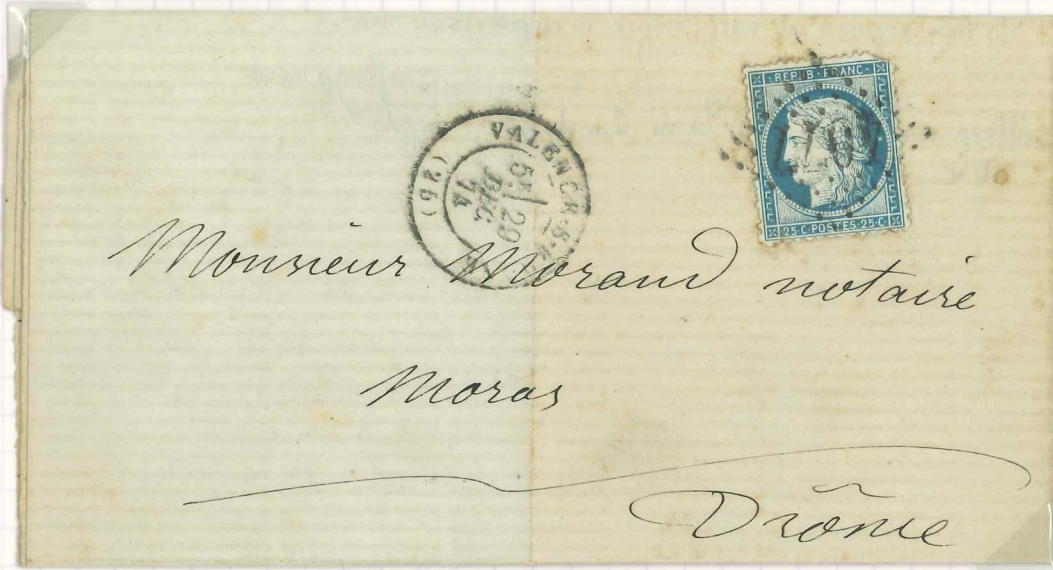 REPUB·FRANC·
25·C·POSTES·25·C·
5E
29
DEC
74
(25)
Monsieur Morand notaire
Moras
Drôme